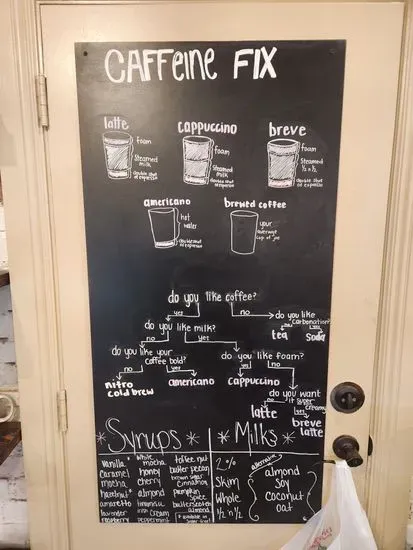 CAFFeine FIX
latte
foam
steamed
milk
double shot
of espresso
cappuccino
foam
steamed
milk
double shot
of espresso
breve
foam
steamed
½ n ½
double shot
of espresso
americano
hot
water
double shot
of espresso
brewed coffee
your
average
cup of joe
do you like coffee?
yes
no
do you like
carbonation?
no
yes
tea
soda
do you like milk?
no
yes
do you like your
coffee bold?
no
yes
nitro
cold brew
americano
do you like foam?
yes
no
cappuccino
do you want
it super
creamy
no
yes
latte
breve
latte
* Syrups *
vanilla*
caramel
mocha
hazelnut*
amaretto
lavender
raspberry
white
mocha
honey
cherry
almond
tiramisu
irish cream
peppermint
toffee nut
butter pecan
brown sugar
cinnamon
pumpkin
spice
butterscotch
almond
* available in
sugar free
* Milks *
2%
Skim
Whole
½ n ½
alternative
almond
soy
coconut
oat